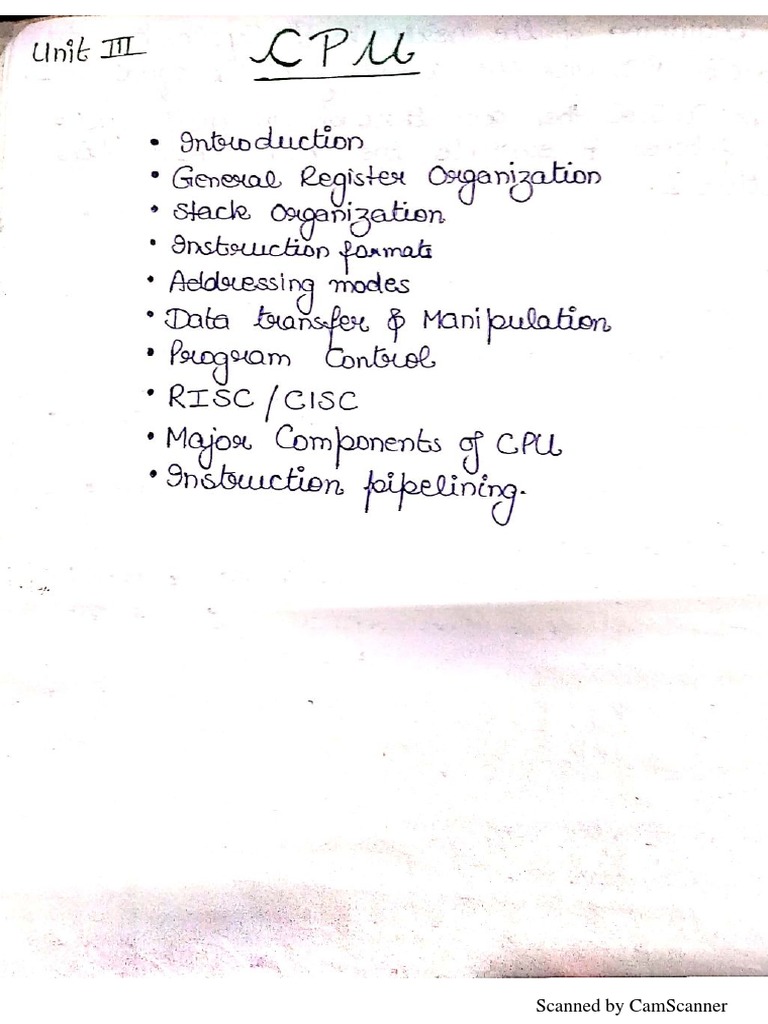 Unit III
CPU
• Introduction
• General Register Organization
• Stack Organization
• Instruction formats
• Addressing modes
• Data transfer & Manipulation
• Program Control
• RISC / CISC
• Major Components of CPU
• Instruction pipelining.
Scanned by CamScanner